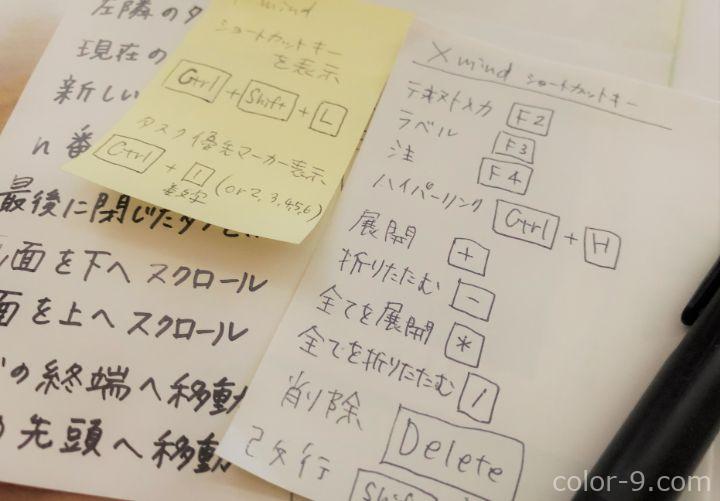 左隣のタ
現在の
新しい
n番
最後に閉じたタブを
面を下へスクロール
面を上へスクロール
の終端へ移動
先頭へ移動
Xmind
ショートカットキー
を表示
Ctrl + Shift + L
タスク優先マーカー表示
Ctrl + 1 (or 2, 3, 4, 5, 6)
番文字
Xmind ショートカットキー
テキスト入力 F2
ラベル F3
注 F4
ハイパーリンク Ctrl + H
展開 +
折りたたむ -
全てを展開 *
全てを折りたたむ /
削除 Delete
改行 Shift
color-9.com